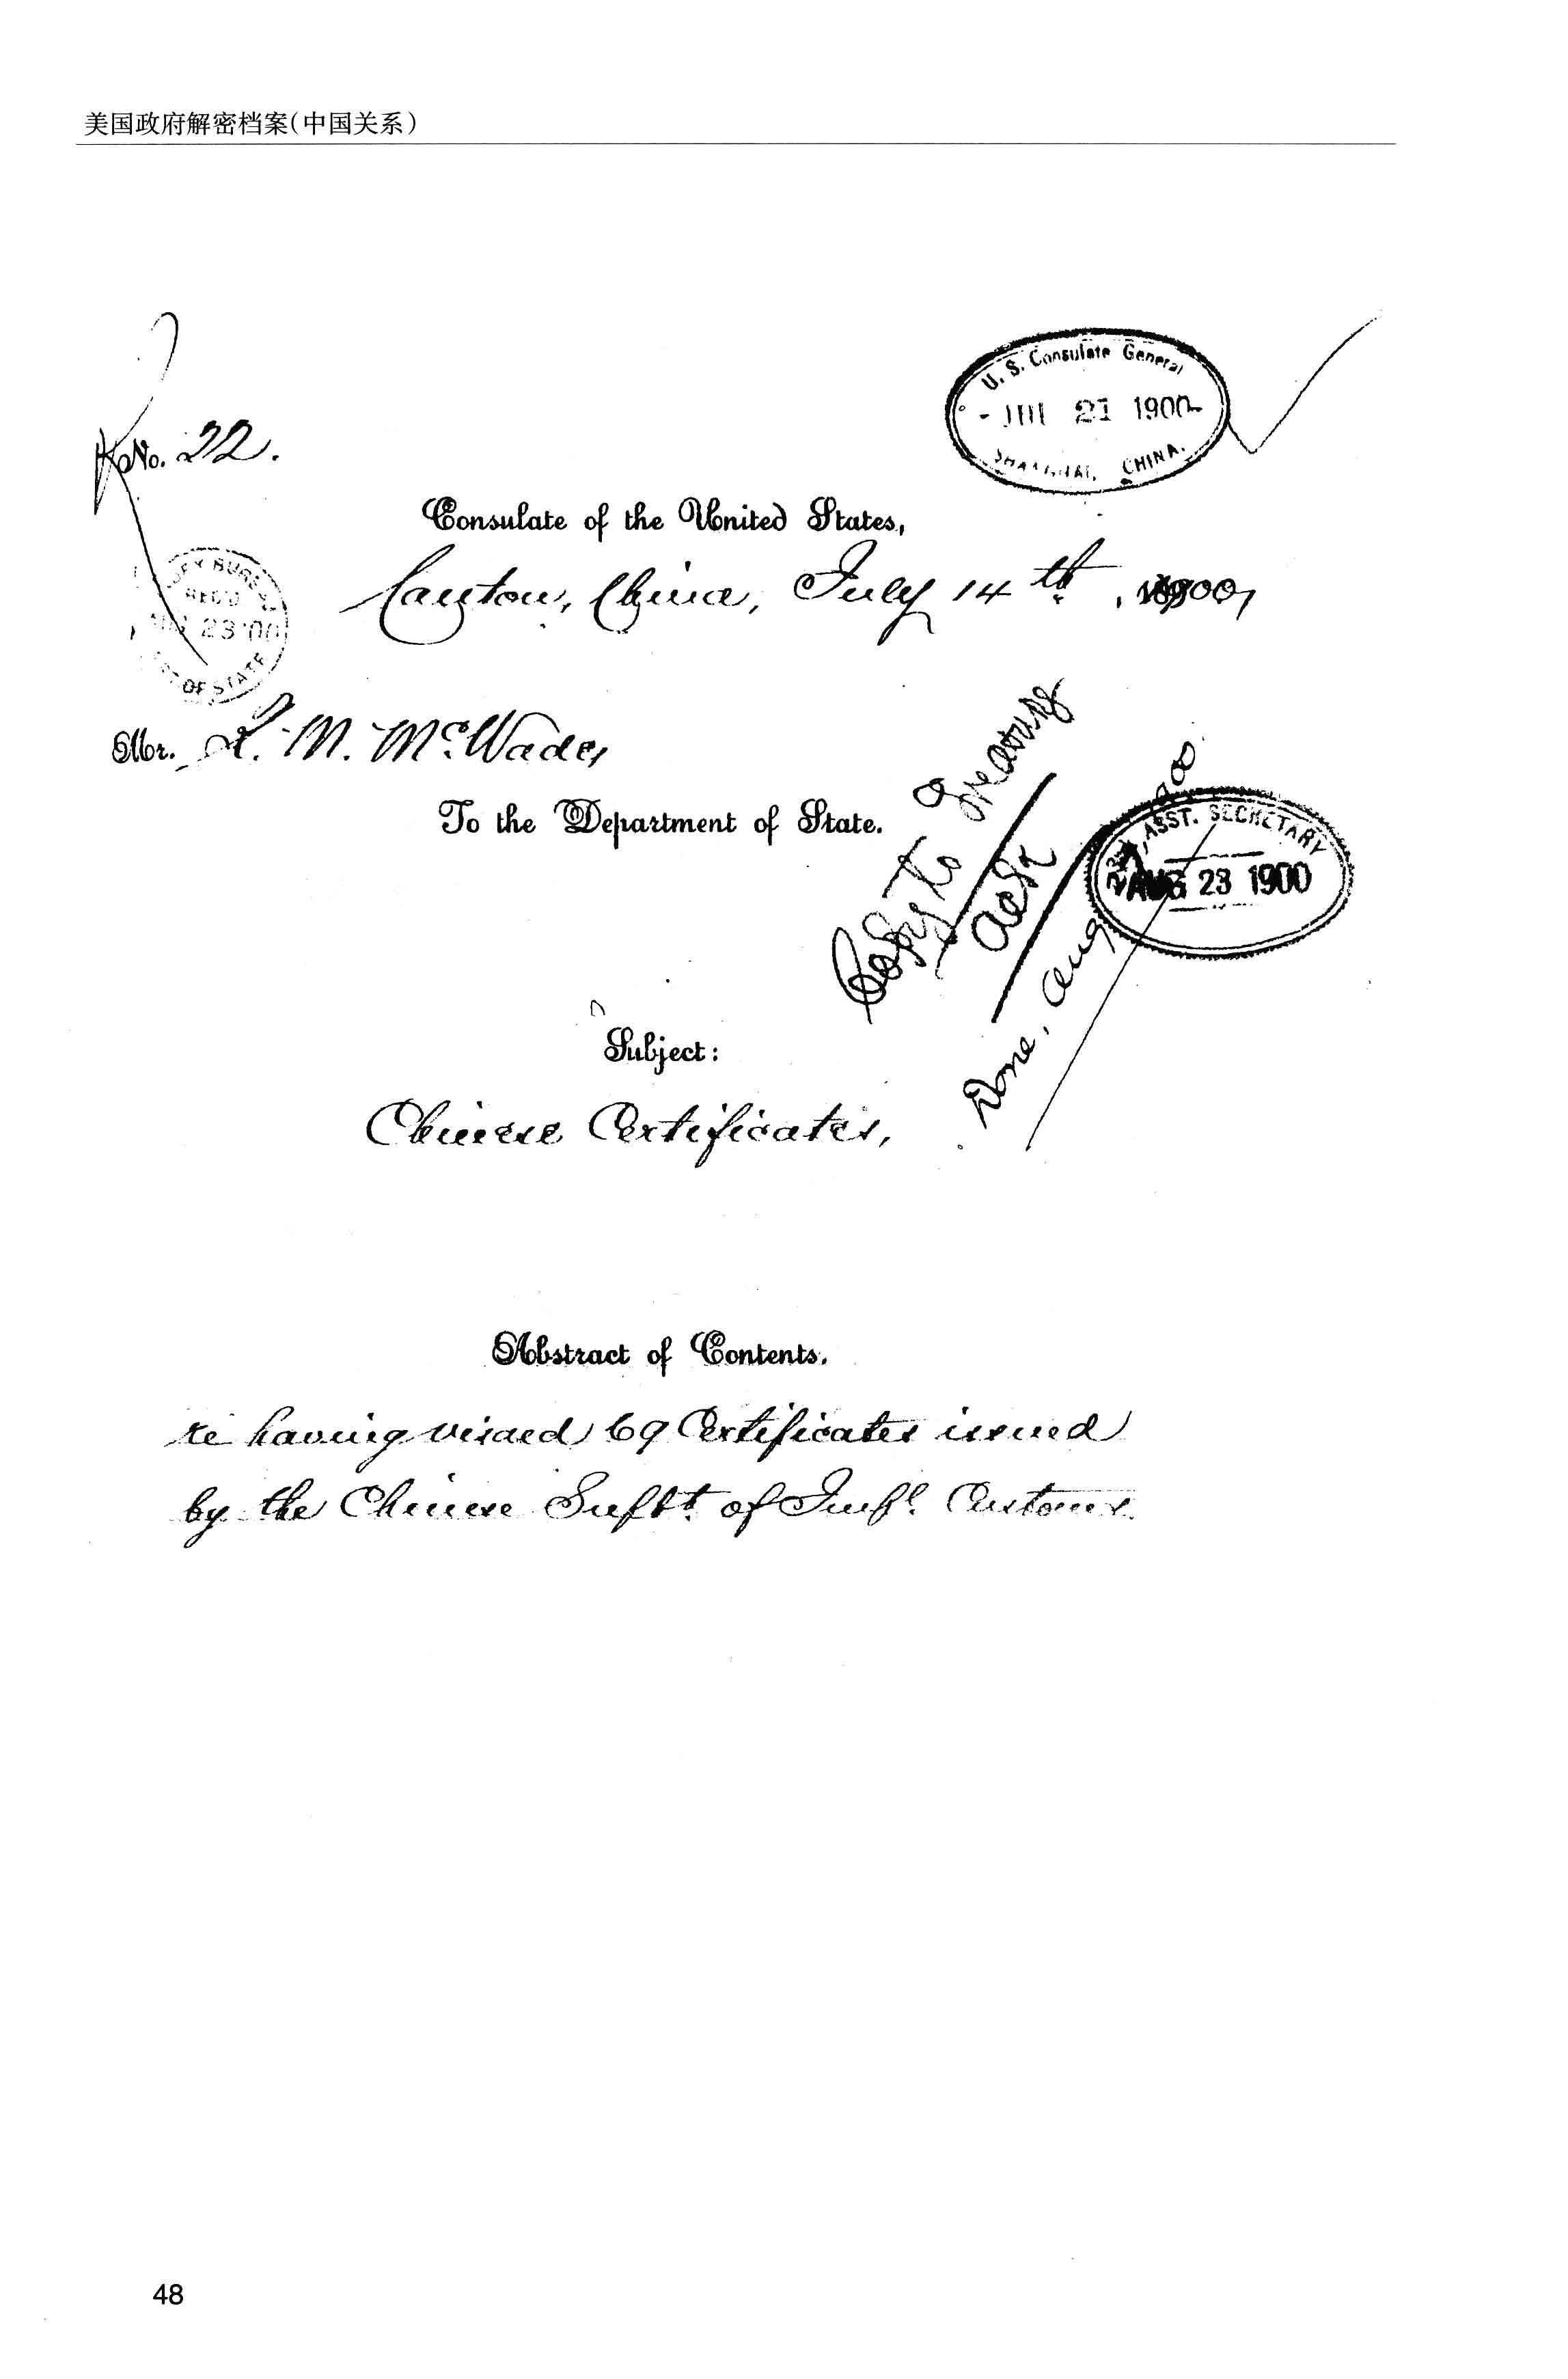 美国政府解密档案(中国关系)
U. S. Consulate General
JUL 21 1900
SHANGHAI, CHINA.
No. 22.
Consulate of the United States,
Canton, China, July 14th, 1900,
BUREAU
REC'D
23 '00
OF STATE
Mr. R. M. McWade,
To the Department of State.
Copy to Treasury
Ack
Done, Aug
ASST. SECRETARY
AUG 23 1900
Subject:
Chinese Certificates,
Abstract of Contents.
re having visaed 69 Certificates issued
by the Chinese Supt. of Impl. Customs.
48